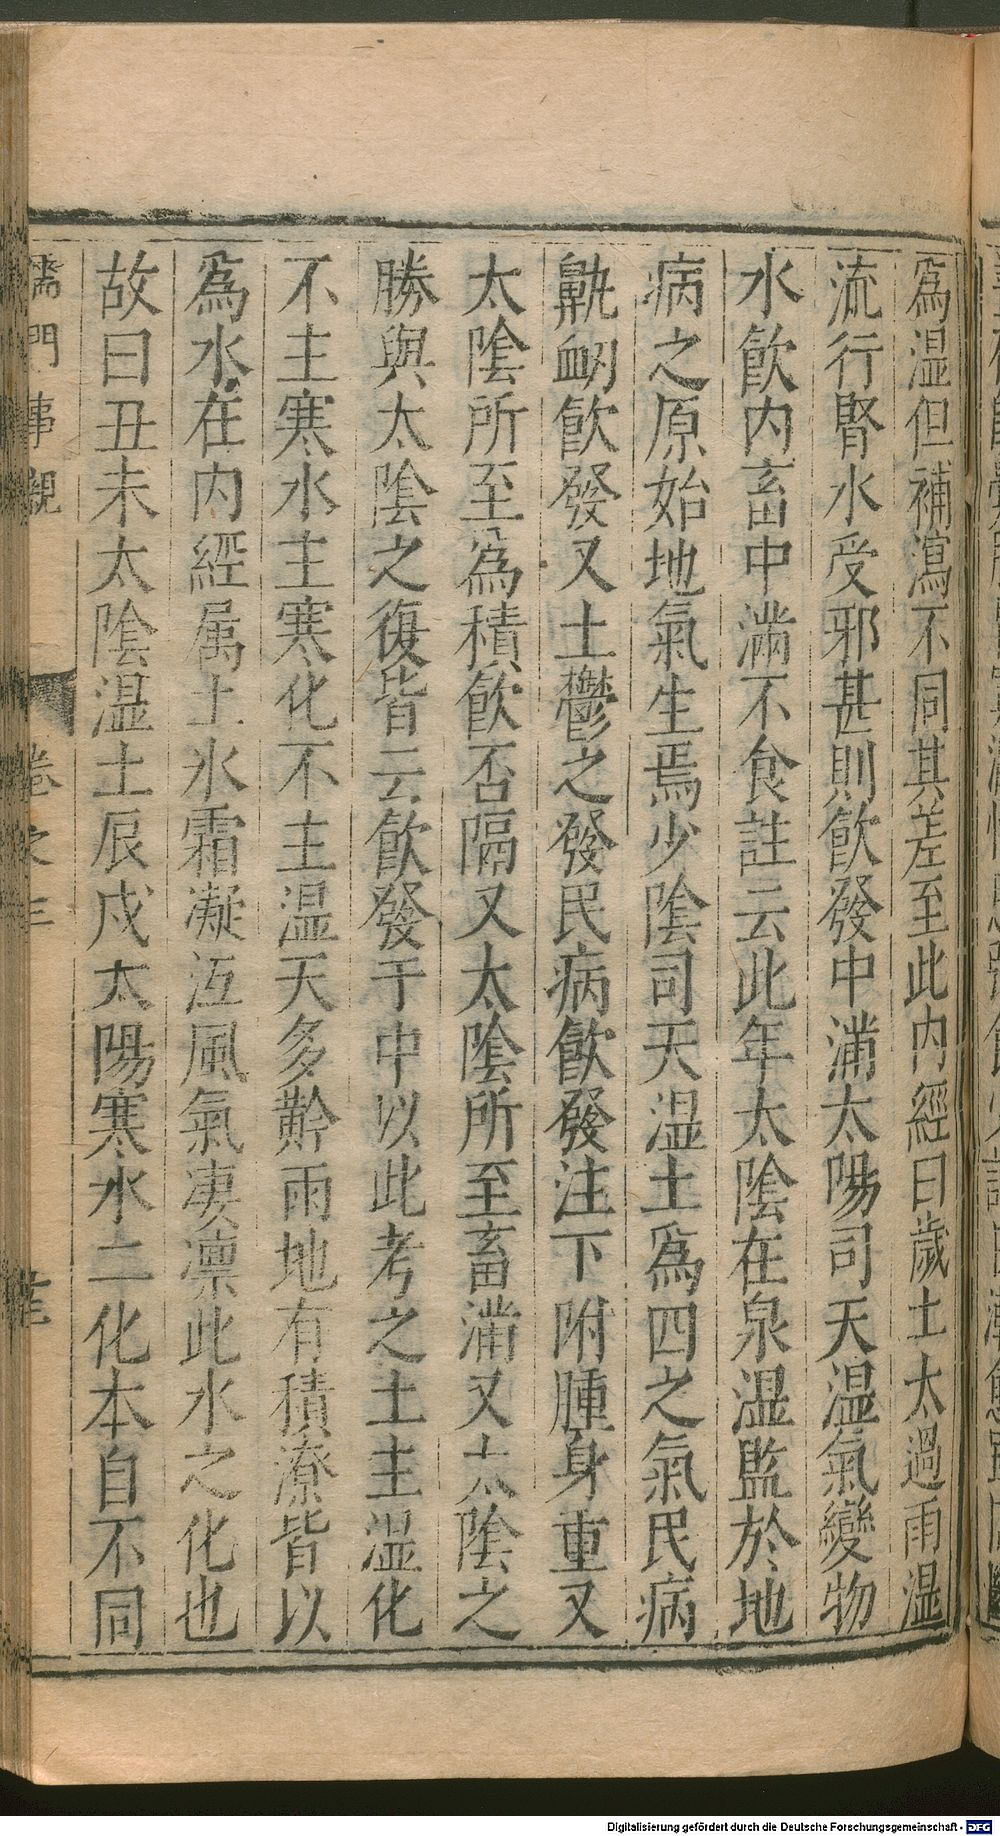 為温但補瀉不同其差至此内經曰歲土太過雨温
流行腎水受邪甚則飲發中滿太陽司天温氣變物
水飲内畜中滿不食註云此年太陰在泉温監於地
病之原始地氣生焉少陰司天温土爲四之氣民病
鼽衂飲發又土鬱之發民病飲發注下附腫身重又
太陰所至為積飲否隔又太陰所至畜滿又太陰之
勝與太陰之復皆云飲發于中以此考之土主温化
不主寒水主寒化不主温天多黔雨地有積潦皆以
為水在内經属土水霜凝沍風氣凄凛此水之化也
故曰丑未太陰温土辰戌太陽寒水二化本自不同
儒門事親 卷之三
Digitalisierung gefördert durch die Deutsche Forschungsgemeinschaft - DFG